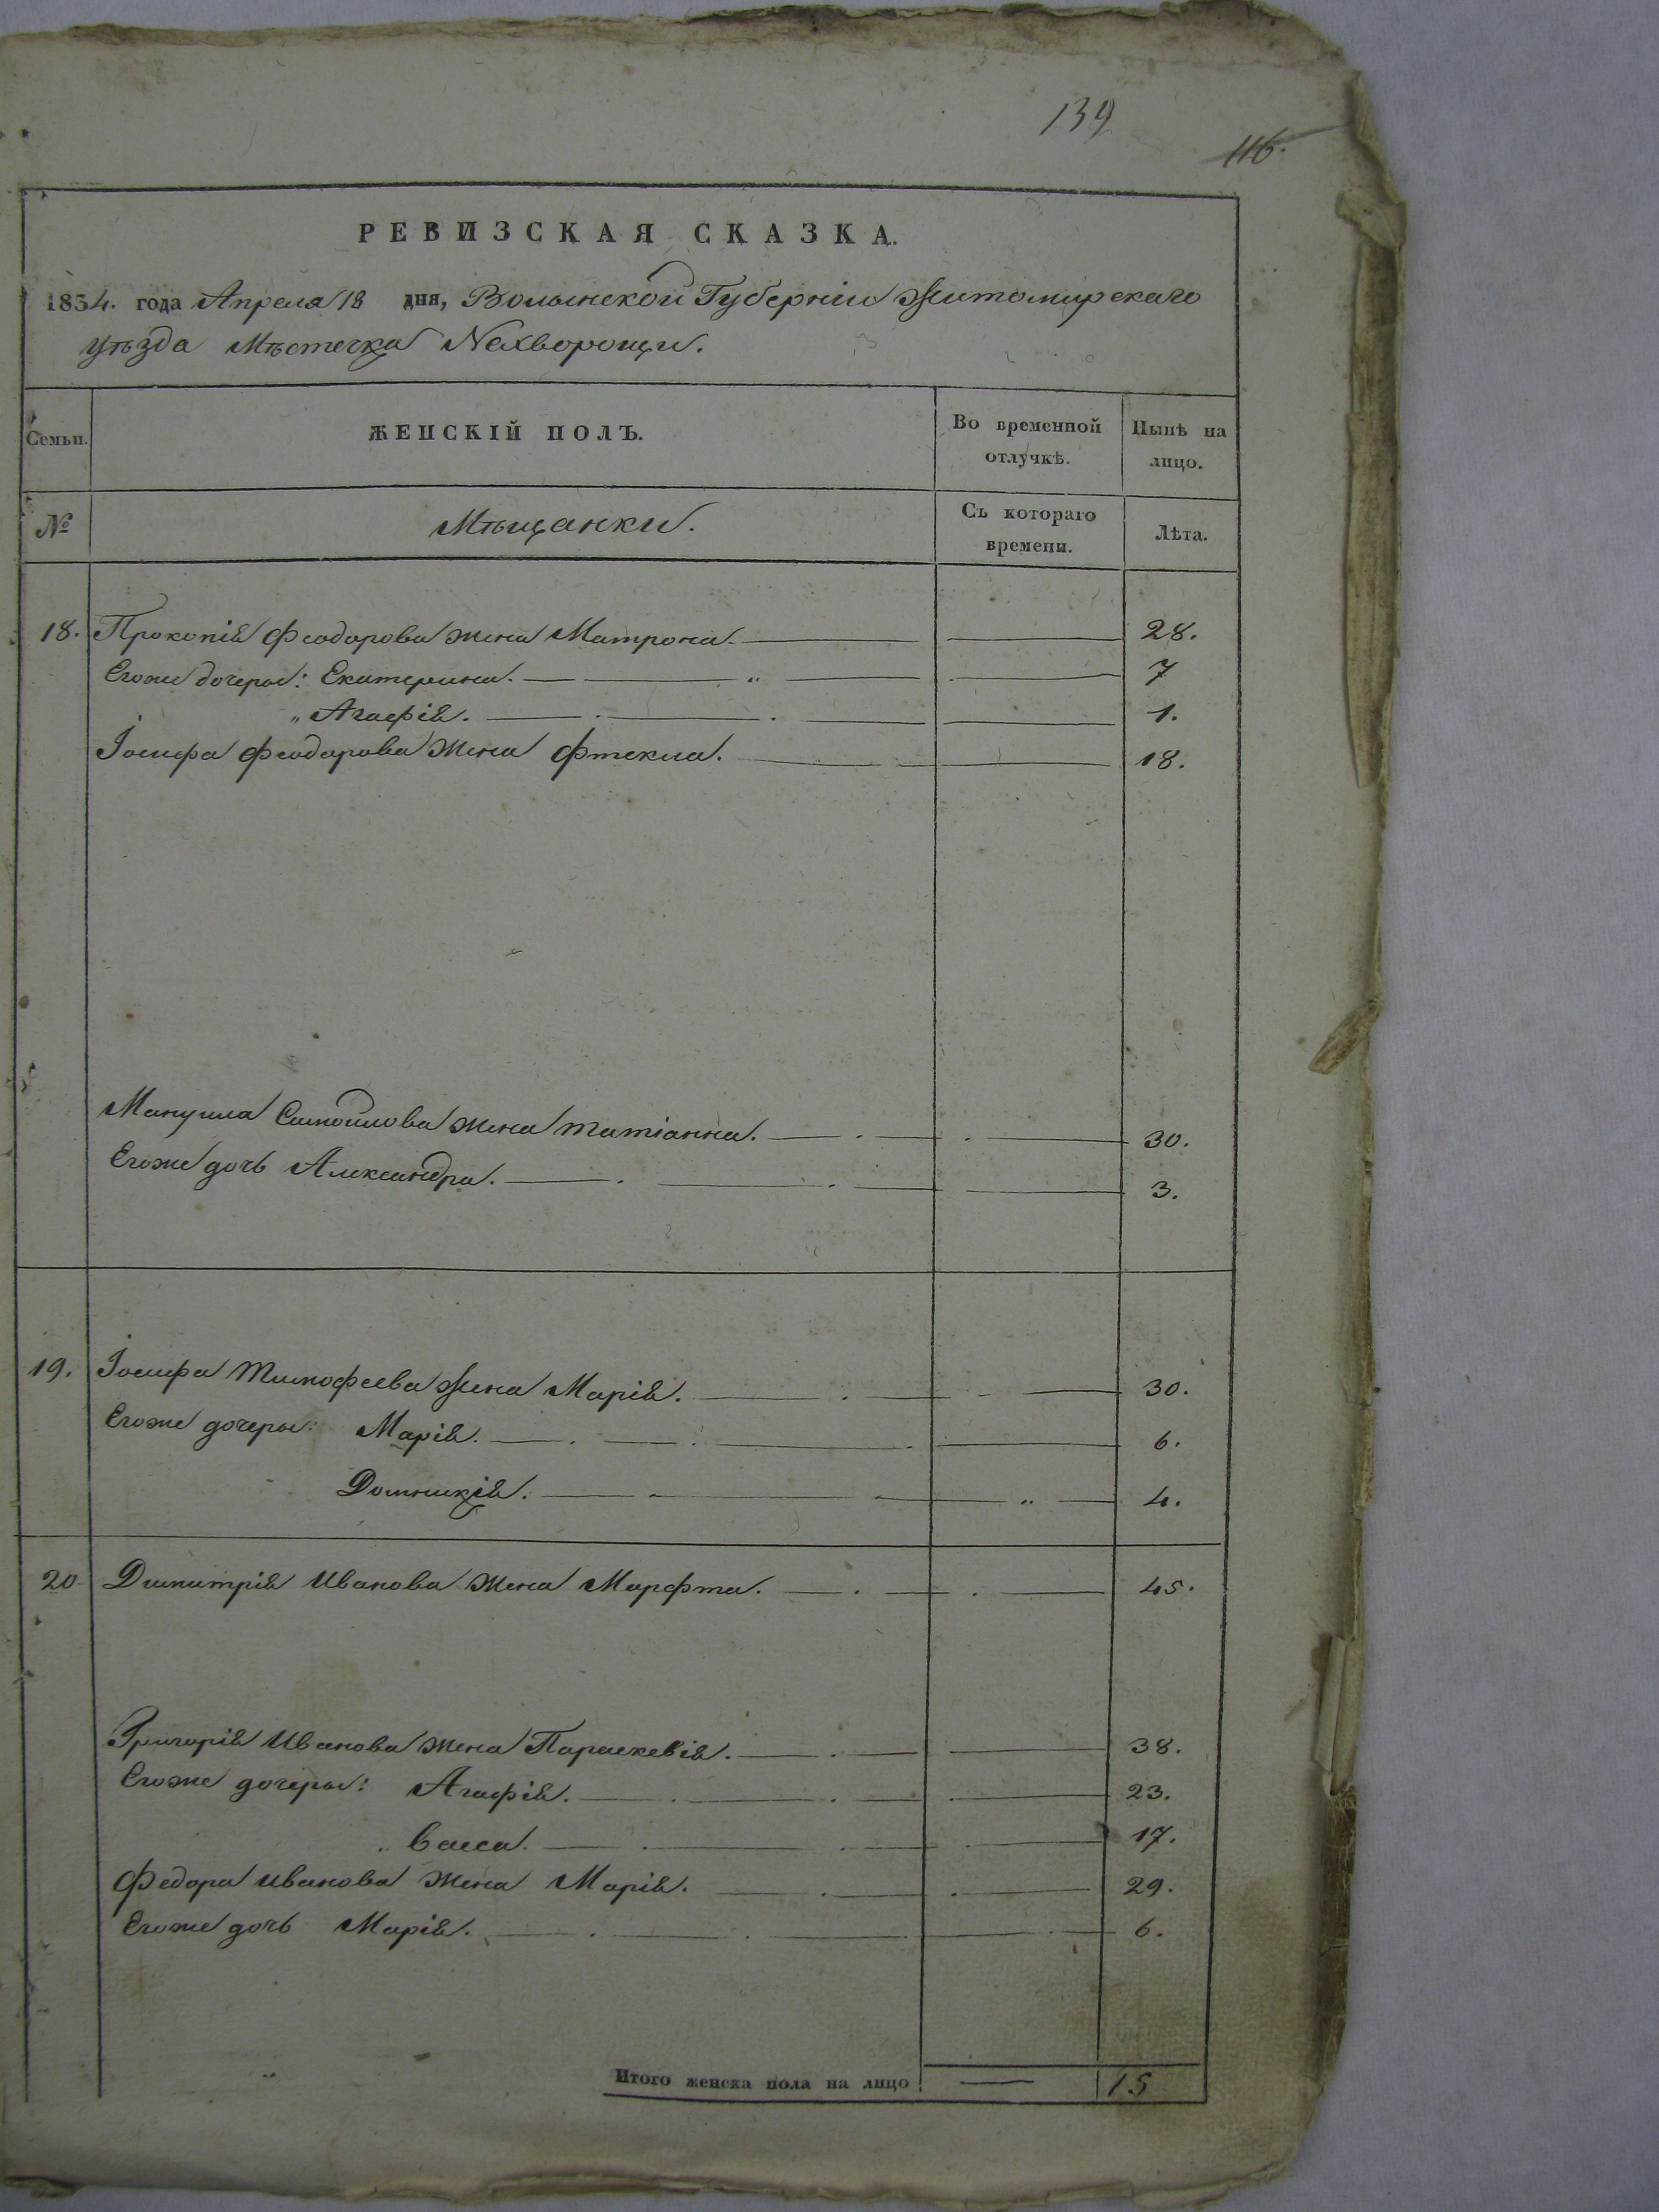 139
116.
РЕВИЗСКАЯ СКАЗКА.
1834. года Апреля 18 дня, Волынской Губерніи Житомирскаго
уѣзда Мѣстечка Нехворощи.
Семьи. ЖЕНСКІЙ ПОЛЪ. Во временной отлучкѣ. Нынѣ на лицо.
№ Мѣщанки. Съ котораго времени. Лѣта.
18. Прокопія Феодорова жена Матрона. 28.
Егоже дочеры: Екатерина. „ 7
„ Агафія. 1.
Іосифа Феодорова жена Фтекла. 18.
Мануила Самойлова жена Татіанна. 30.
Егоже дочь Александра. 3.
19. Іосифа Тимофеева жена Марія. 30.
Егоже дочеры: Марія. 6.
Домникія. „ 4.
20 Димитрія Иванова жена Марфта. 45.
Григорія Иванова жена Параскевія. 38.
Егоже дочеры: Агафія. 23.
„ Васса. 17.
Федора Иванова жена Марія. 29.
Егоже дочь Марія. 6.
Итого женска пола на лицо — 15